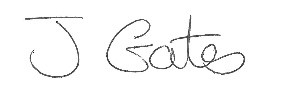 J Gates